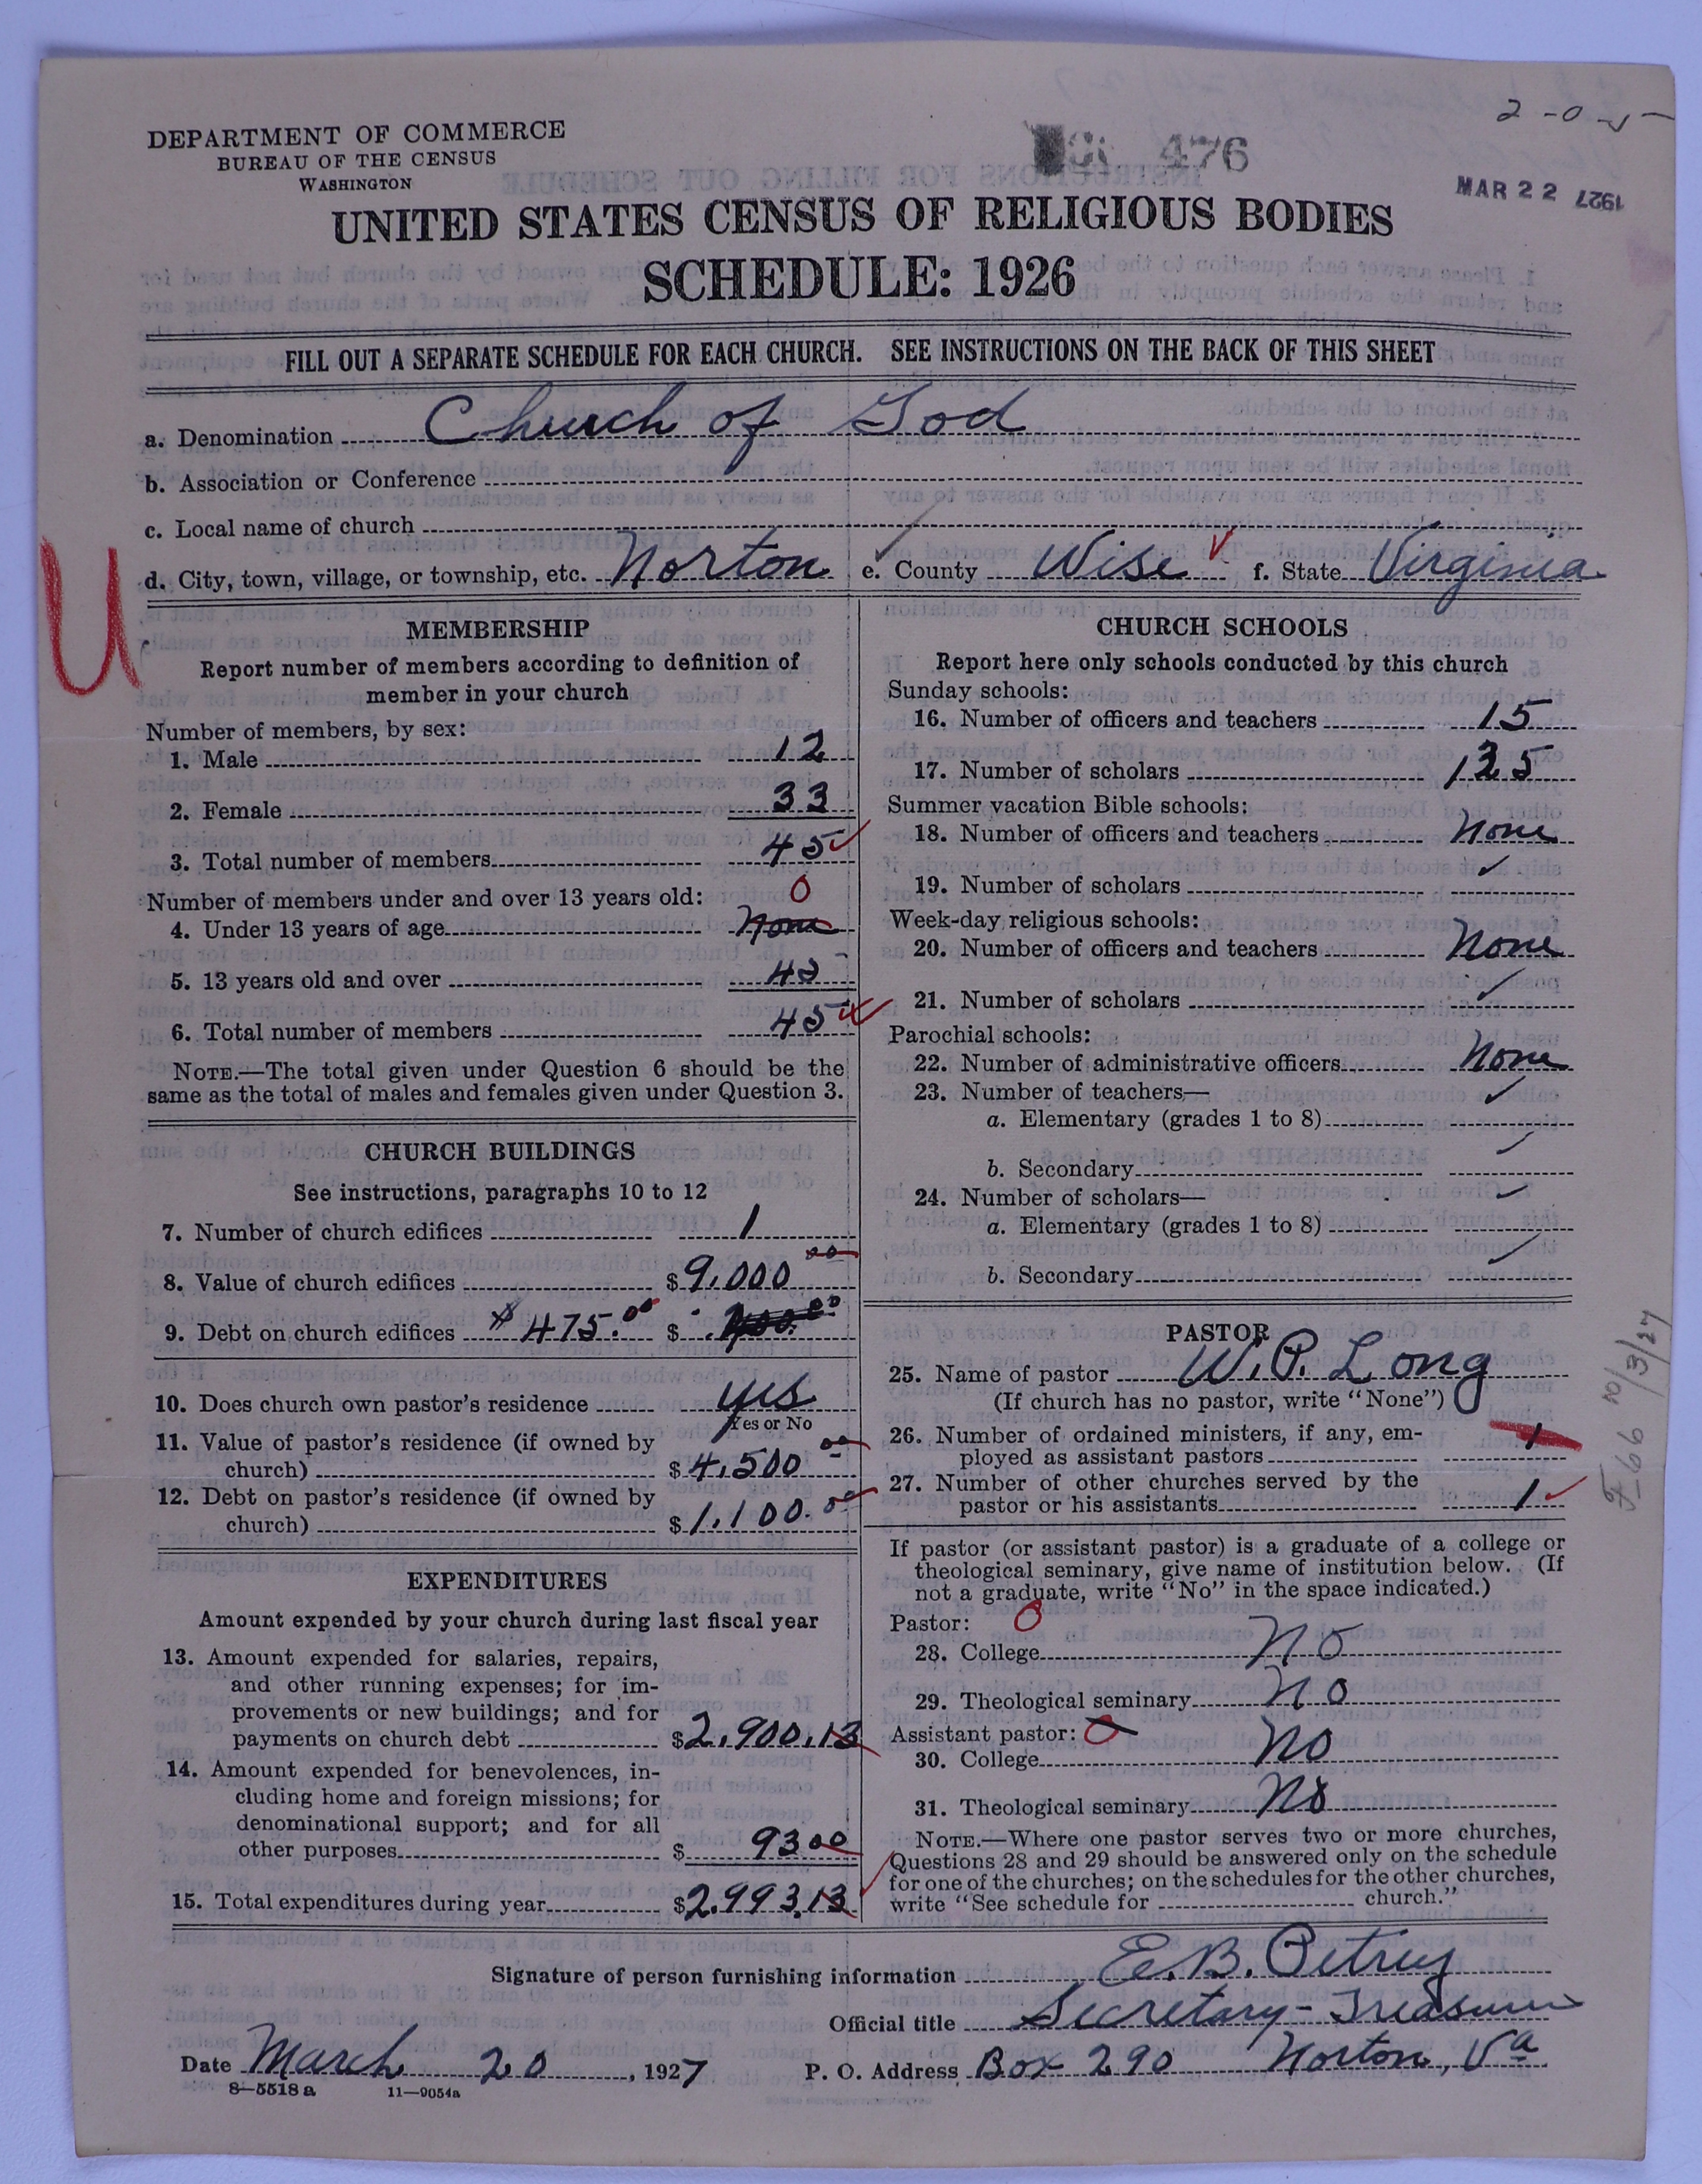 2-0-5
DEPARTMENT OF COMMERCE
BUREAU OF THE CENSUS
WASHINGTON
476
MAR 22 1927
UNITED STATES CENSUS OF RELIGIOUS BODIES
SCHEDULE: 1926
FILL OUT A SEPARATE SCHEDULE FOR EACH CHURCH. SEE INSTRUCTIONS ON THE BACK OF THIS SHEET
a. Denomination Church of God
b. Association or Conference
c. Local name of church
d. City, town, village, or township, etc. Norton e. County Wise f. State Virginia
U
MEMBERSHIP
Report number of members according to definition of
member in your church
Number of members, by sex:
1. Male 12
2. Female 33
3. Total number of members 45
Number of members under and over 13 years old: 0
4. Under 13 years of age None
5. 13 years old and over 45
6. Total number of members 45
NOTE.—The total given under Question 6 should be the
same as the total of males and females given under Question 3.
CHURCH BUILDINGS
See instructions, paragraphs 10 to 12
7. Number of church edifices 1
8. Value of church edifices $9,000 00
9. Debt on church edifices $475.00 $
10. Does church own pastor's residence yes
Yes or No
11. Value of pastor's residence (if owned by
church) $4,500 00
12. Debt on pastor's residence (if owned by
church) $1,100.00
EXPENDITURES
Amount expended by your church during last fiscal year
13. Amount expended for salaries, repairs,
and other running expenses; for im-
provements or new buildings; and for
payments on church debt $2,900.13
14. Amount expended for benevolences, in-
cluding home and foreign missions; for
denominational support; and for all
other purposes $ 93 00
15. Total expenditures during year $2,993.13
CHURCH SCHOOLS
Report here only schools conducted by this church
Sunday schools:
16. Number of officers and teachers 15
17. Number of scholars 135
Summer vacation Bible schools:
18. Number of officers and teachers None
19. Number of scholars
Week-day religious schools:
20. Number of officers and teachers None
21. Number of scholars
Parochial schools:
22. Number of administrative officers None
23. Number of teachers—
a. Elementary (grades 1 to 8)
b. Secondary
24. Number of scholars—
a. Elementary (grades 1 to 8)
b. Secondary
PASTOR
25. Name of pastor W. P. Long
(If church has no pastor, write "None")
26. Number of ordained ministers, if any, em-
ployed as assistant pastors 1
27. Number of other churches served by the
pastor or his assistants 1
If pastor (or assistant pastor) is a graduate of a college or
theological seminary, give name of institution below. (If
not a graduate, write "No" in the space indicated.)
Pastor: 0
28. College No
29. Theological seminary No
Assistant pastor: 0
30. College No
31. Theological seminary No
NOTE.—Where one pastor serves two or more churches,
Questions 28 and 29 should be answered only on the schedule
for one of the churches; on the schedules for the other churches,
write "See schedule for church."
Signature of person furnishing information E. B. Petrey
Official title Secretary-Treasurer
Date March 20, 1927 P. O. Address Box 290 Norton, Va
8—5518 a 11—9054a